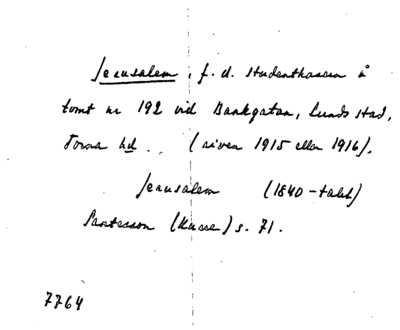 Jerusalem, f. d. studentkasern å
tomt nr 192 vid Bankgatan, Lunds stad,
Torna hd. (riven 1915 eller 1916).
Jerusalem (1840-talet)
(Kusse) s. 71.
7764